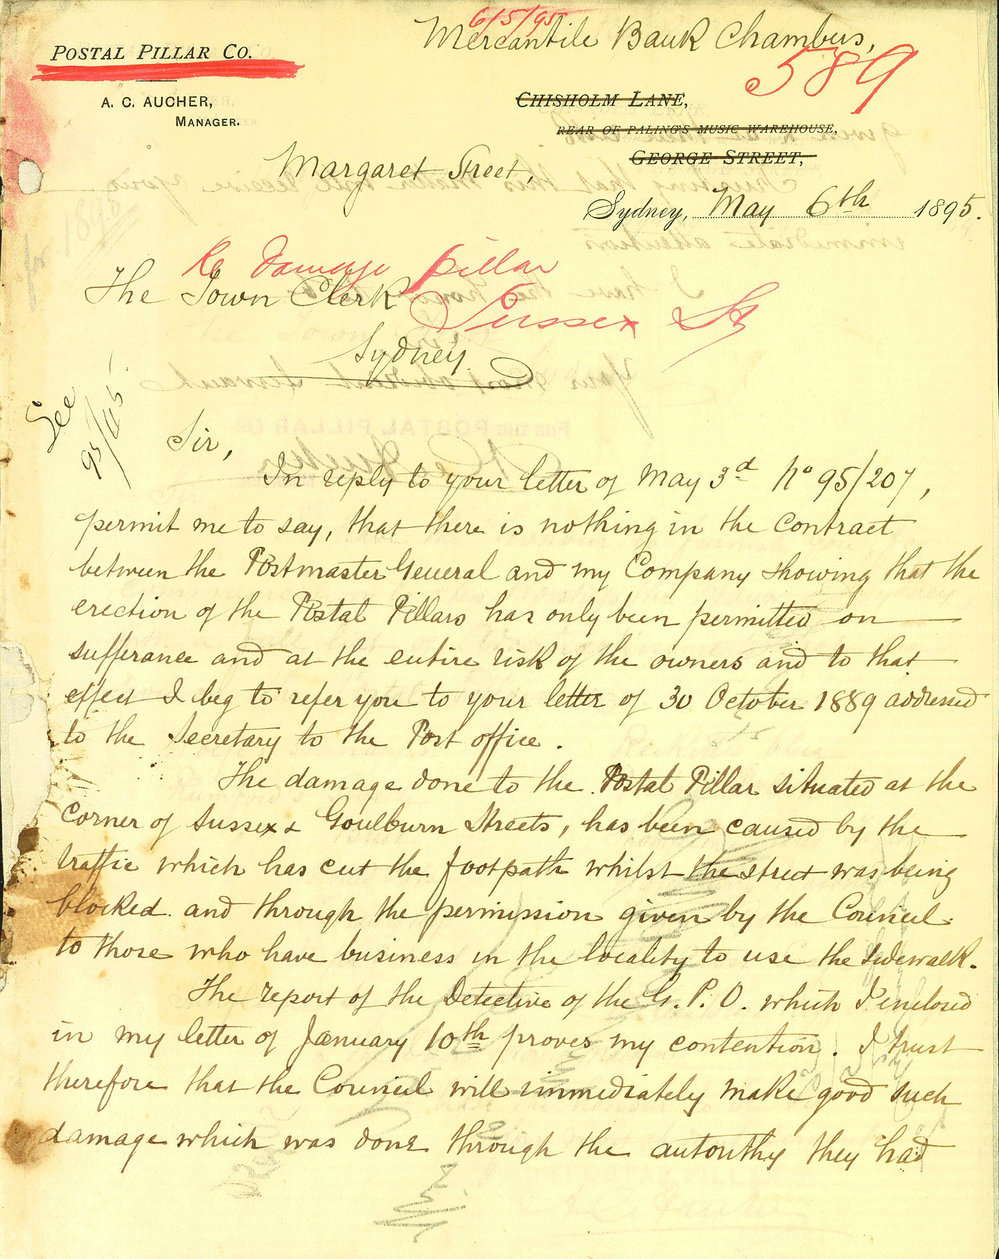 6/5/95
Mercantile Bank Chambers,
POSTAL PILLAR CO.
589
A. C. AUCHER,
MANAGER.
CHISHOLM LANE,
REAR OF PALING'S MUSIC WAREHOUSE,
GEORGE STREET,
Margaret Street,
Sydney, May 6th 1895.
Re Damage pillar
The Town Clerk
Sussex St
Sydney
See
95/45
Sir,
In reply to your letter of May 3d No 95/207,
permit me to say, that there is nothing in the contract
between the Postmaster General and my Company showing that the
erection of the Postal Pillars has only been permitted on
sufferance and at the entire risk of the owners and to that
effect I beg to refer you to your letter of 30 October 1889 addressed
to the Secretary to the Post office.
The damage done to the Postal Pillar situated at the
Corner of Sussex & Goulburn Streets, has been caused by the
traffic which has cut the footpath whilst the street was being
blocked and through the permission given by the Council
to those who have business in the locality to use the sidewalk.
The report of the Detective of the G. P. O. which I enclosed
in my letter of January 10th proves my contention. I trust
therefore that the Council will immediately make good such
damage which was done through the autorithy they had